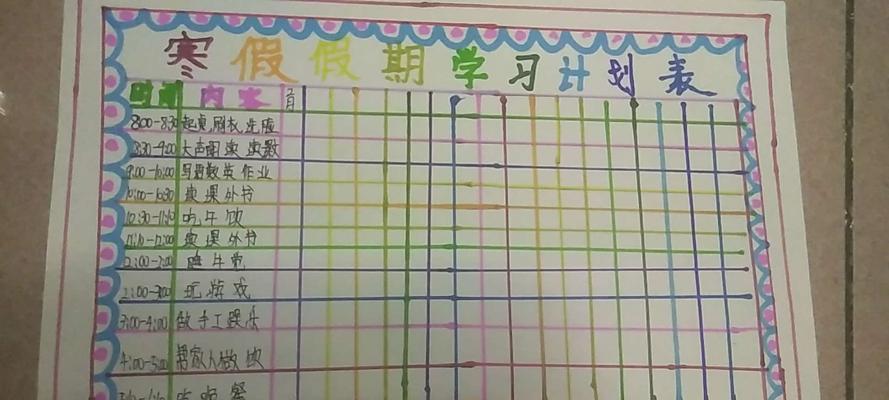 寒假假期学习计划表
时间 内容 二月
8:00-8:30 起桌刷权先脸
8:30-9:00 大声朗读
9:00-10:00 写语数英作业
10:00-10:30 读课外书
10:30-11:10 吃午饭
11:10-12:00 读课外书
12:00-2:00 睡午觉
2:00-3:00 玩游戏
3:00-4:00 做手工娱乐
4:00-5:00 帮家人做饭
吃晚餐